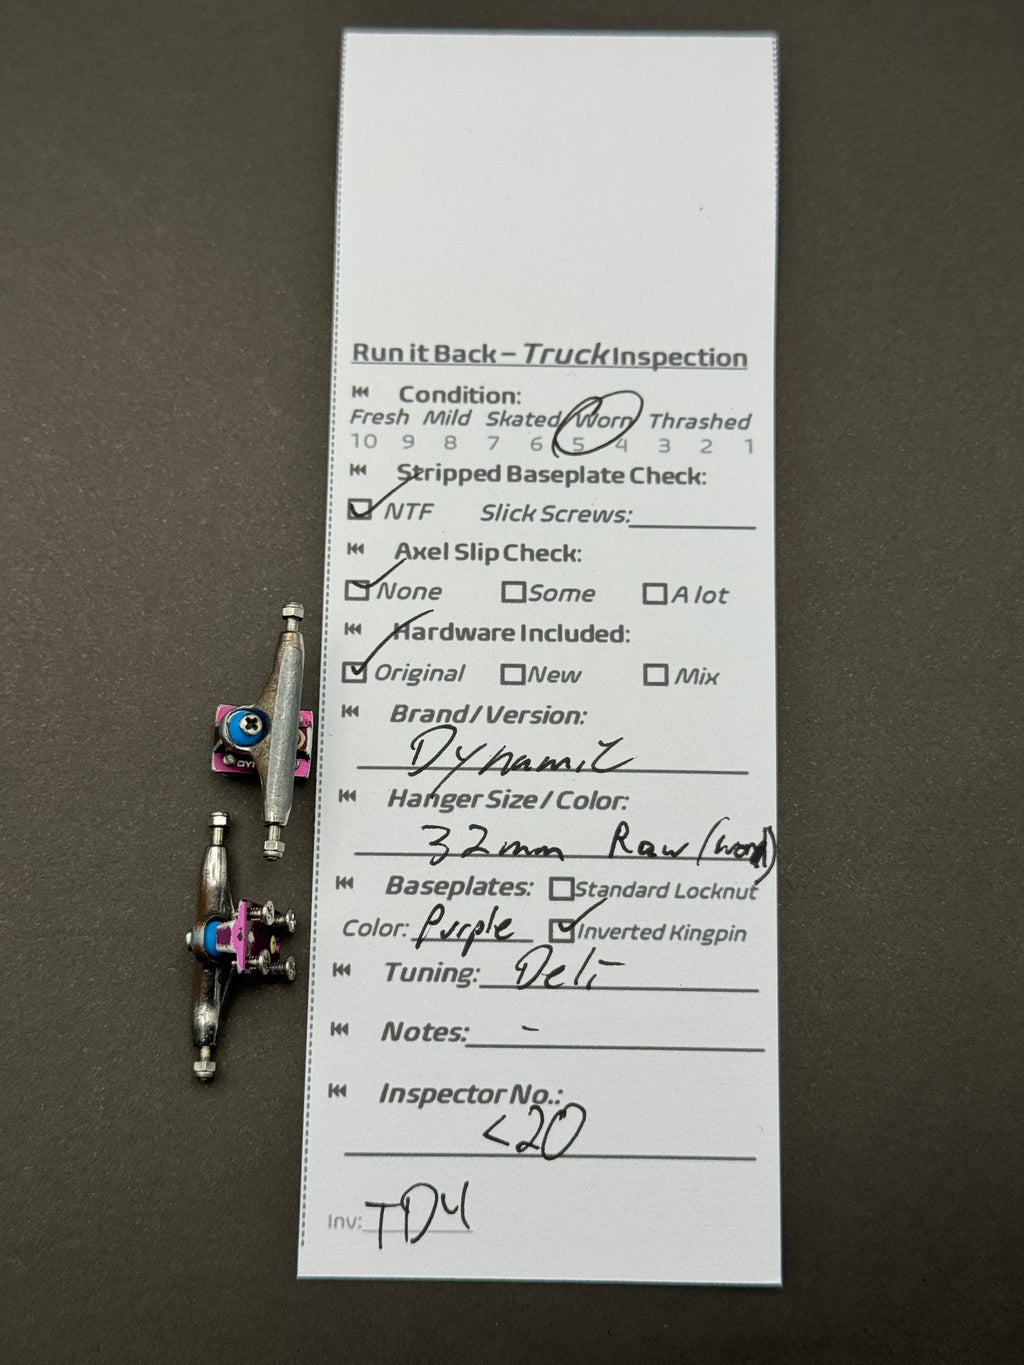 Run it Back – Truck Inspection
Condition:
Fresh Mild Skated Worn Thrashed
10 9 8 7 6 5 4 3 2 1
Stripped Baseplate Check:
NTF Slick Screws:
Axel Slip Check:
None Some A lot
Hardware Included:
Original New Mix
Brand/Version:
Dynamic
Hanger Size/Color:
32mm Raw
Baseplates: Standard Locknut
Color: Purple Inverted Kingpin
Tuning: Deli
Notes: -
Inspector No.:
<20
Inv: TD4
DY